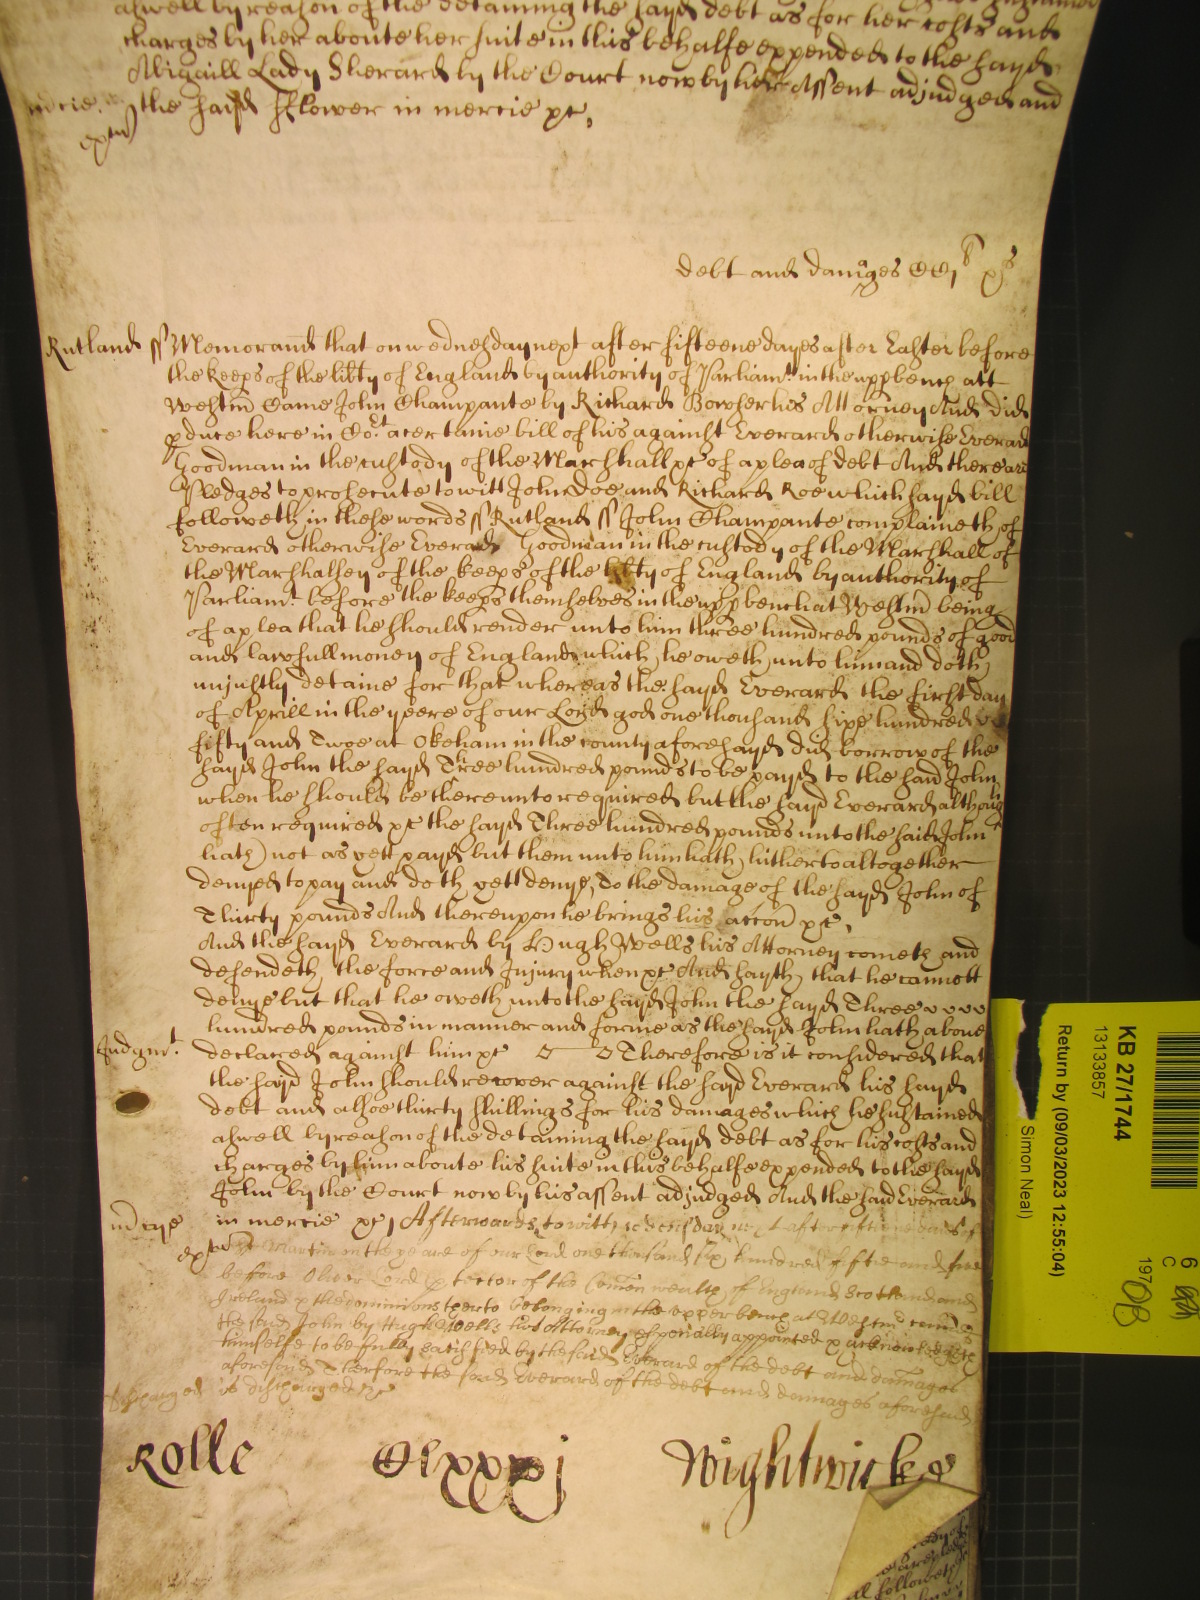 aswell by reason of the detaining the sayd debt as for her costs and
charges by her aboute her suite in this behalfe expended to the sayd
Abigaill Lady Sherard by the Court now by her Assent adjudged and
the sayd Fflower in mercie &c,
debt and damages CCCj li xs
Rutland ss Memorand that on wednesday next after fifteene dayes after Easter before
the keeps of the libty of England by authority of Parliamt. in the uppbench att
Westm Came John Champante by Richard Bowser his Attorney And did
pduce here in Cot. a certaine bill of his against Everard otherwise Everard
Goodman in the custody of the Marshall &c of a plea of debt And there are
Pledges to prosecute to witt John Doe and Richard Roe which sayd bill
followeth in these words ss Rutland ss John Champante complaineth of
Everard otherwise Everard Goodman in the custody of the Marshall of
the Marshalsey of the keeps of the libty of England by authority of
Parliamt. before the keeps themselves in the uppbench at Westm being
of a plea that he should render unto him three hundred pounds of good
and lawfull money of England which he oweth unto him and doth
unjustly detaine for that whereas the sayd Everard the first day
of Aprill in the yeere of our Lord god one thousand sixe hundred
fifty and Twoe at Okeham in the county aforesayd did borrow of the
sayd John the sayd Three hundred pounds to be payd to the said John
when he should be thereunto required but the sayd Everard although
often required &c the sayd Three hundred pounds unto the said John
hath not as yett payd but them unto him hath hitherto altogether
denyed to pay and doth yett denye, To the damage of the sayd John of
Thirty pounds And thereupon he brings his accon &c,
And the sayd Everard by Hugh Wells his Attorney cometh and
defendeth the force and Injury when &c And sayth that he cannott
denye but that he oweth unto the sayd John the sayd Three
hundred pounds in manner and forme as the sayd John hath above
Judgmt. declared against him &c Therefore is it considered that
the sayd John should recover against the sayd Everard his sayd
debt and alsoe thirty shillings for his damages which he sustained
aswell by reason of the detaining the sayd debt as for his costs and
charges by him aboute his suite in this behalfe expended to the sayd
John by the Court now by his assent adjudged And the said Everard
in mercie &c, Afterwards to witt next after fifteene daies of
Martin in the yeare of our Lord one thousand six hundred fiftie and
before Oliver Lord Ptector of the Comon wealth of England Scotland and
Ireland & the dominions therto belonging in the upper bench at Westmr cometh
the said John by Hugh Wells his Attorney especially appointed & acknowledgeth
himselfe to be fully satisfied by the said Everard of the debt and damages
aforesaid Therfore the said Everard of the debt and damages aforesaid
is discharged &c
Rolle Clxxxj Wightwicke
KB 27/1744
13133857
Return by (09/03/2023 12:55:04)
Simon Neal)
6
C
197